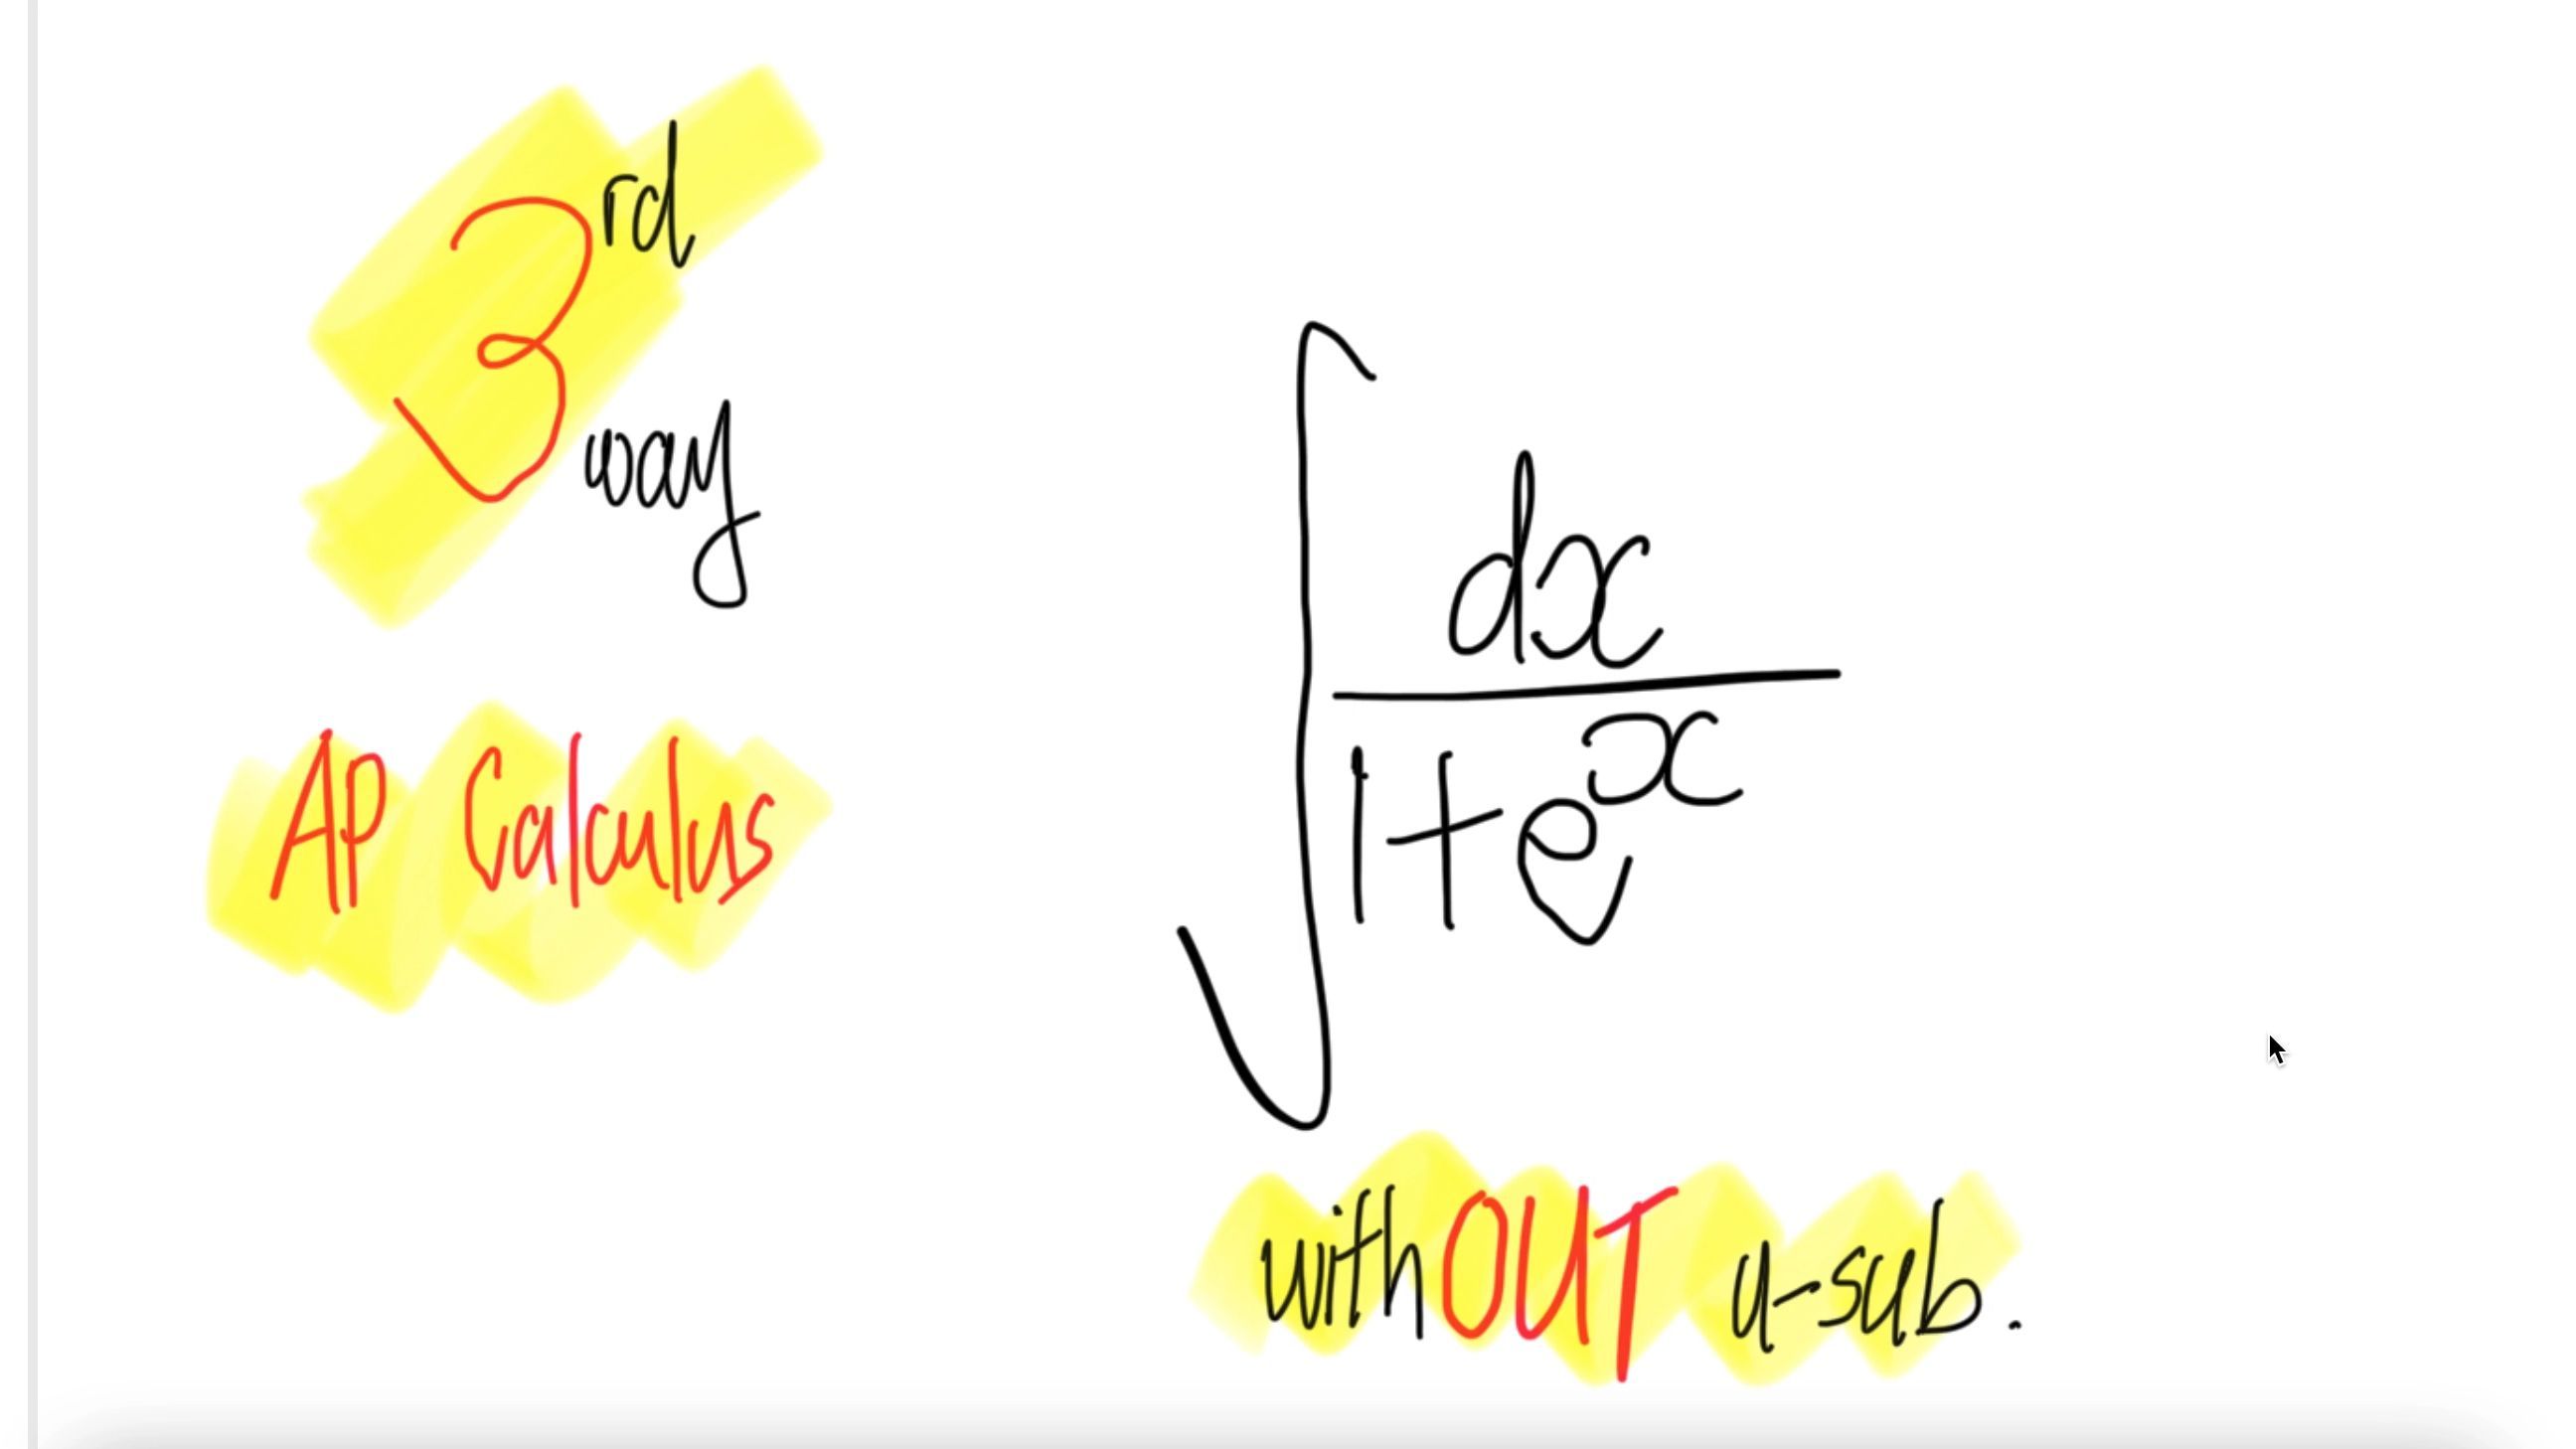 3rd
way
AP Calculus
∫ dx
1+e^x
withOUT u-sub.